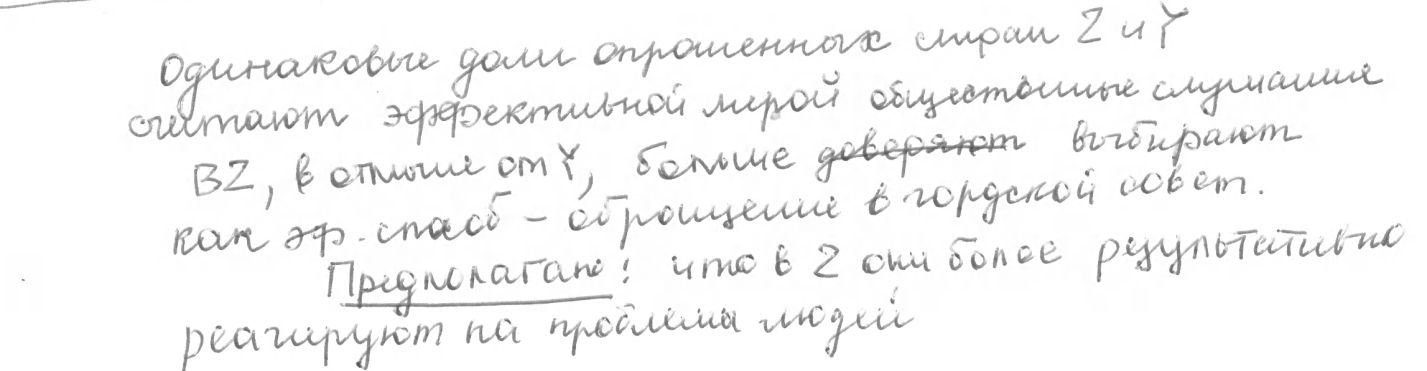 Одинаковые доли опрошенных стран Z и Y
считают эффективной мерой общественные слушания
В Z, в отличие от Y, больше доверяют выбирают
как эф. спасб - обращение в гордской совет.
Предполагаю: что в Z они более результативно
реагируют на проблемы людей